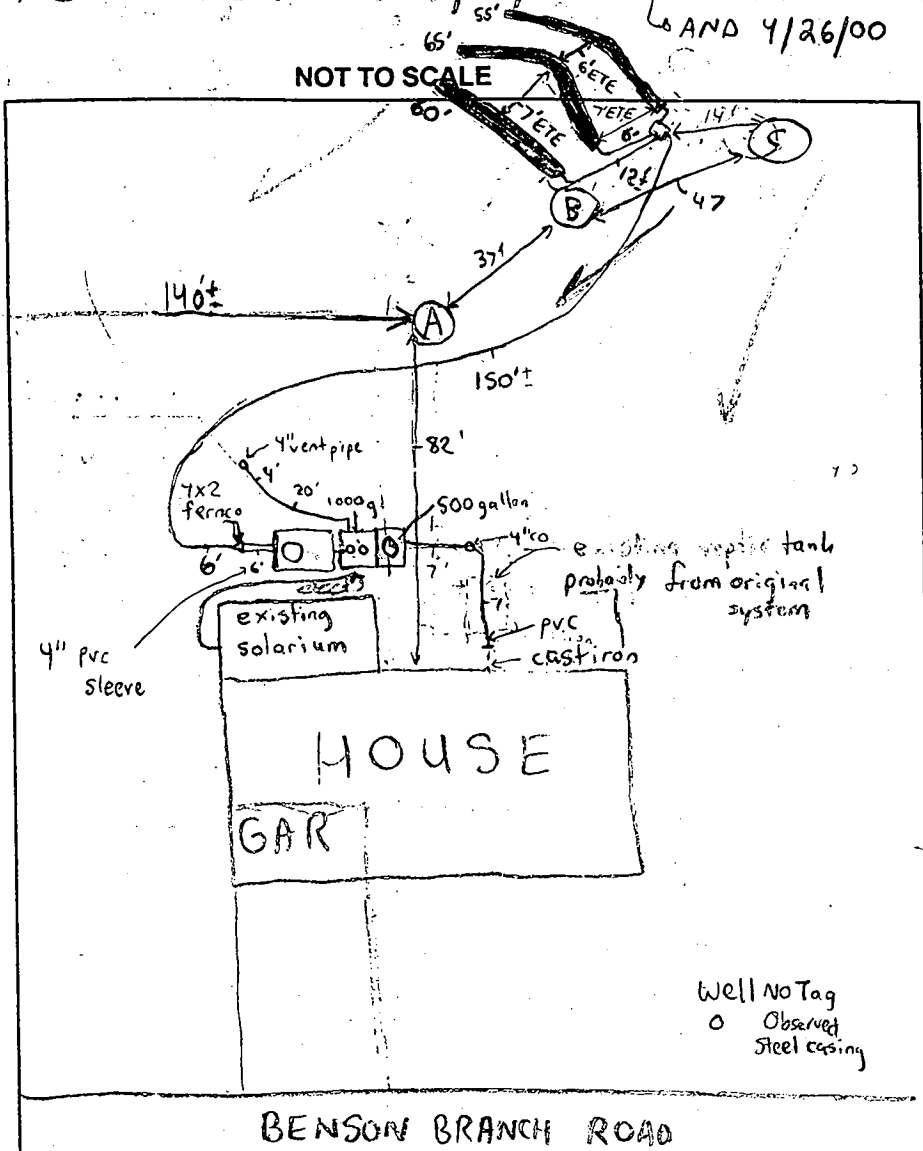 55'
AND 4/26/00
65'
6'ETE
NOT TO SCALE
60'
7'ETE
7'ETE
6'
14'
C
12'
B
47
37'
140'±
A
150'±
82'
4" vent pipe
4'
20'
1000g
500 gallon
4x2
fernco
6'
6'
7'
4"co
existing septic tank
probably from original
system
7'
pvc
cast iron
4" pvc
sleeve
existing
solarium
HOUSE
GAR
Well No Tag
Observed
Steel casing
BENSON BRANCH ROAD